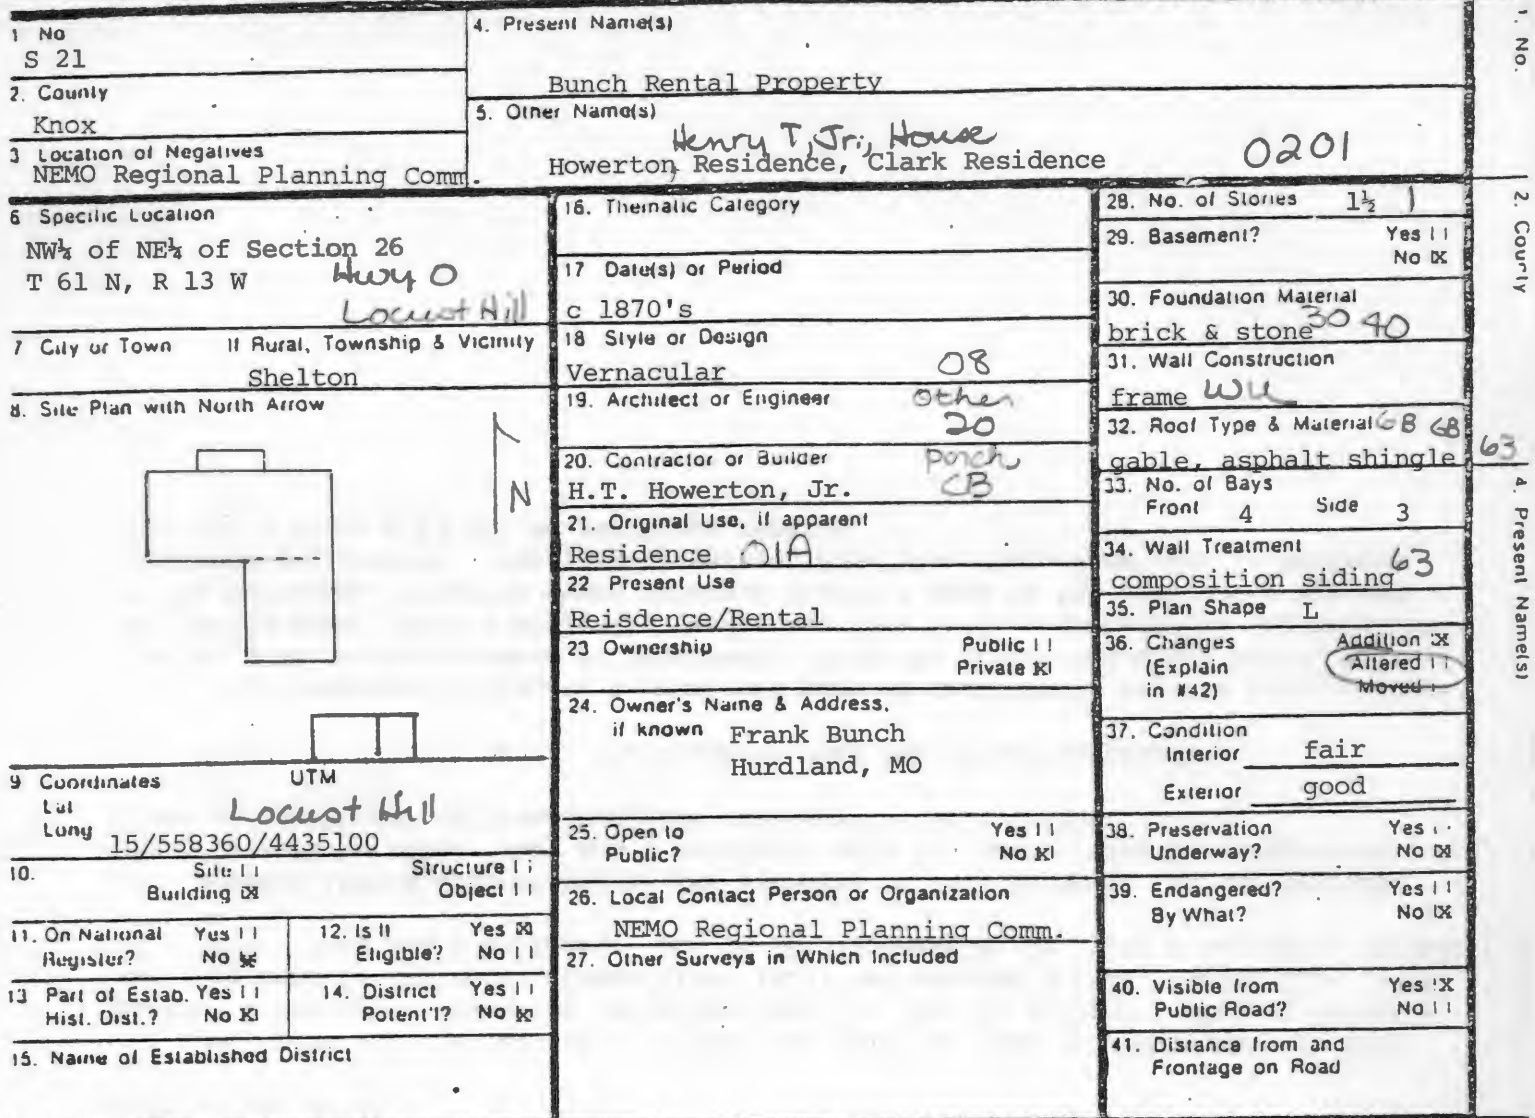 1 No
S 21
2. County
Knox
3 Location of Negatives
NEMO Regional Planning Comm.
4. Present Name(s)
Bunch Rental Property
5. Other Name(s)
Henry T, Jr., House
Howerton, Residence, Clark Residence
0201
6 Specific Location
NW¼ of NE¼ of Section 26
T 61 N, R 13 W Hwy O
Locust Hill
7 City or Town If Rural, Township & Vicinity
Shelton
8. Site Plan with North Arrow
N
9 Coordinates UTM
Lat
Long
Locust Hill
15/558360/4435100
10. Site Structure
Building X Object
11. On National Register? Yes No X
12. Is It Eligible? Yes X No
13 Part of Estab. Hist. Dist.? Yes No X
14. District Potent'l? Yes No X
15. Name of Established District
16. Thematic Category
17 Date(s) or Period
c 1870's
18 Style or Design
Vernacular 08
19. Architect or Engineer Other
20
20. Contractor or Builder Porch
H.T. Howerton, Jr. CB
21. Original Use, if apparent
Residence 01A
22 Present Use
Reisdence/Rental
23 Ownership Public
Private X
24. Owner's Name & Address,
if known Frank Bunch
Hurdland, MO
25. Open to Yes
Public? No X
26. Local Contact Person or Organization
NEMO Regional Planning Comm.
27. Other Surveys in Which Included
28. No. of Stories 1½ 1
29. Basement? Yes
No X
30. Foundation Material
brick & stone 30 40
31. Wall Construction
frame WU
32. Roof Type & Material GB GB
gable, asphalt shingle 63
33. No. of Bays
Front 4 Side 3
34. Wall Treatment
composition siding 63
35. Plan Shape L
36. Changes Addition X
(Explain Altered
in #42) Moved
37. Condition
Interior fair
Exterior good
38. Preservation Yes
Underway? No X
39. Endangered? Yes
By What? No X
40. Visible from Yes X
Public Road? No
41. Distance from and
Frontage on Road
1. No.
2. County
4. Present Name(s)